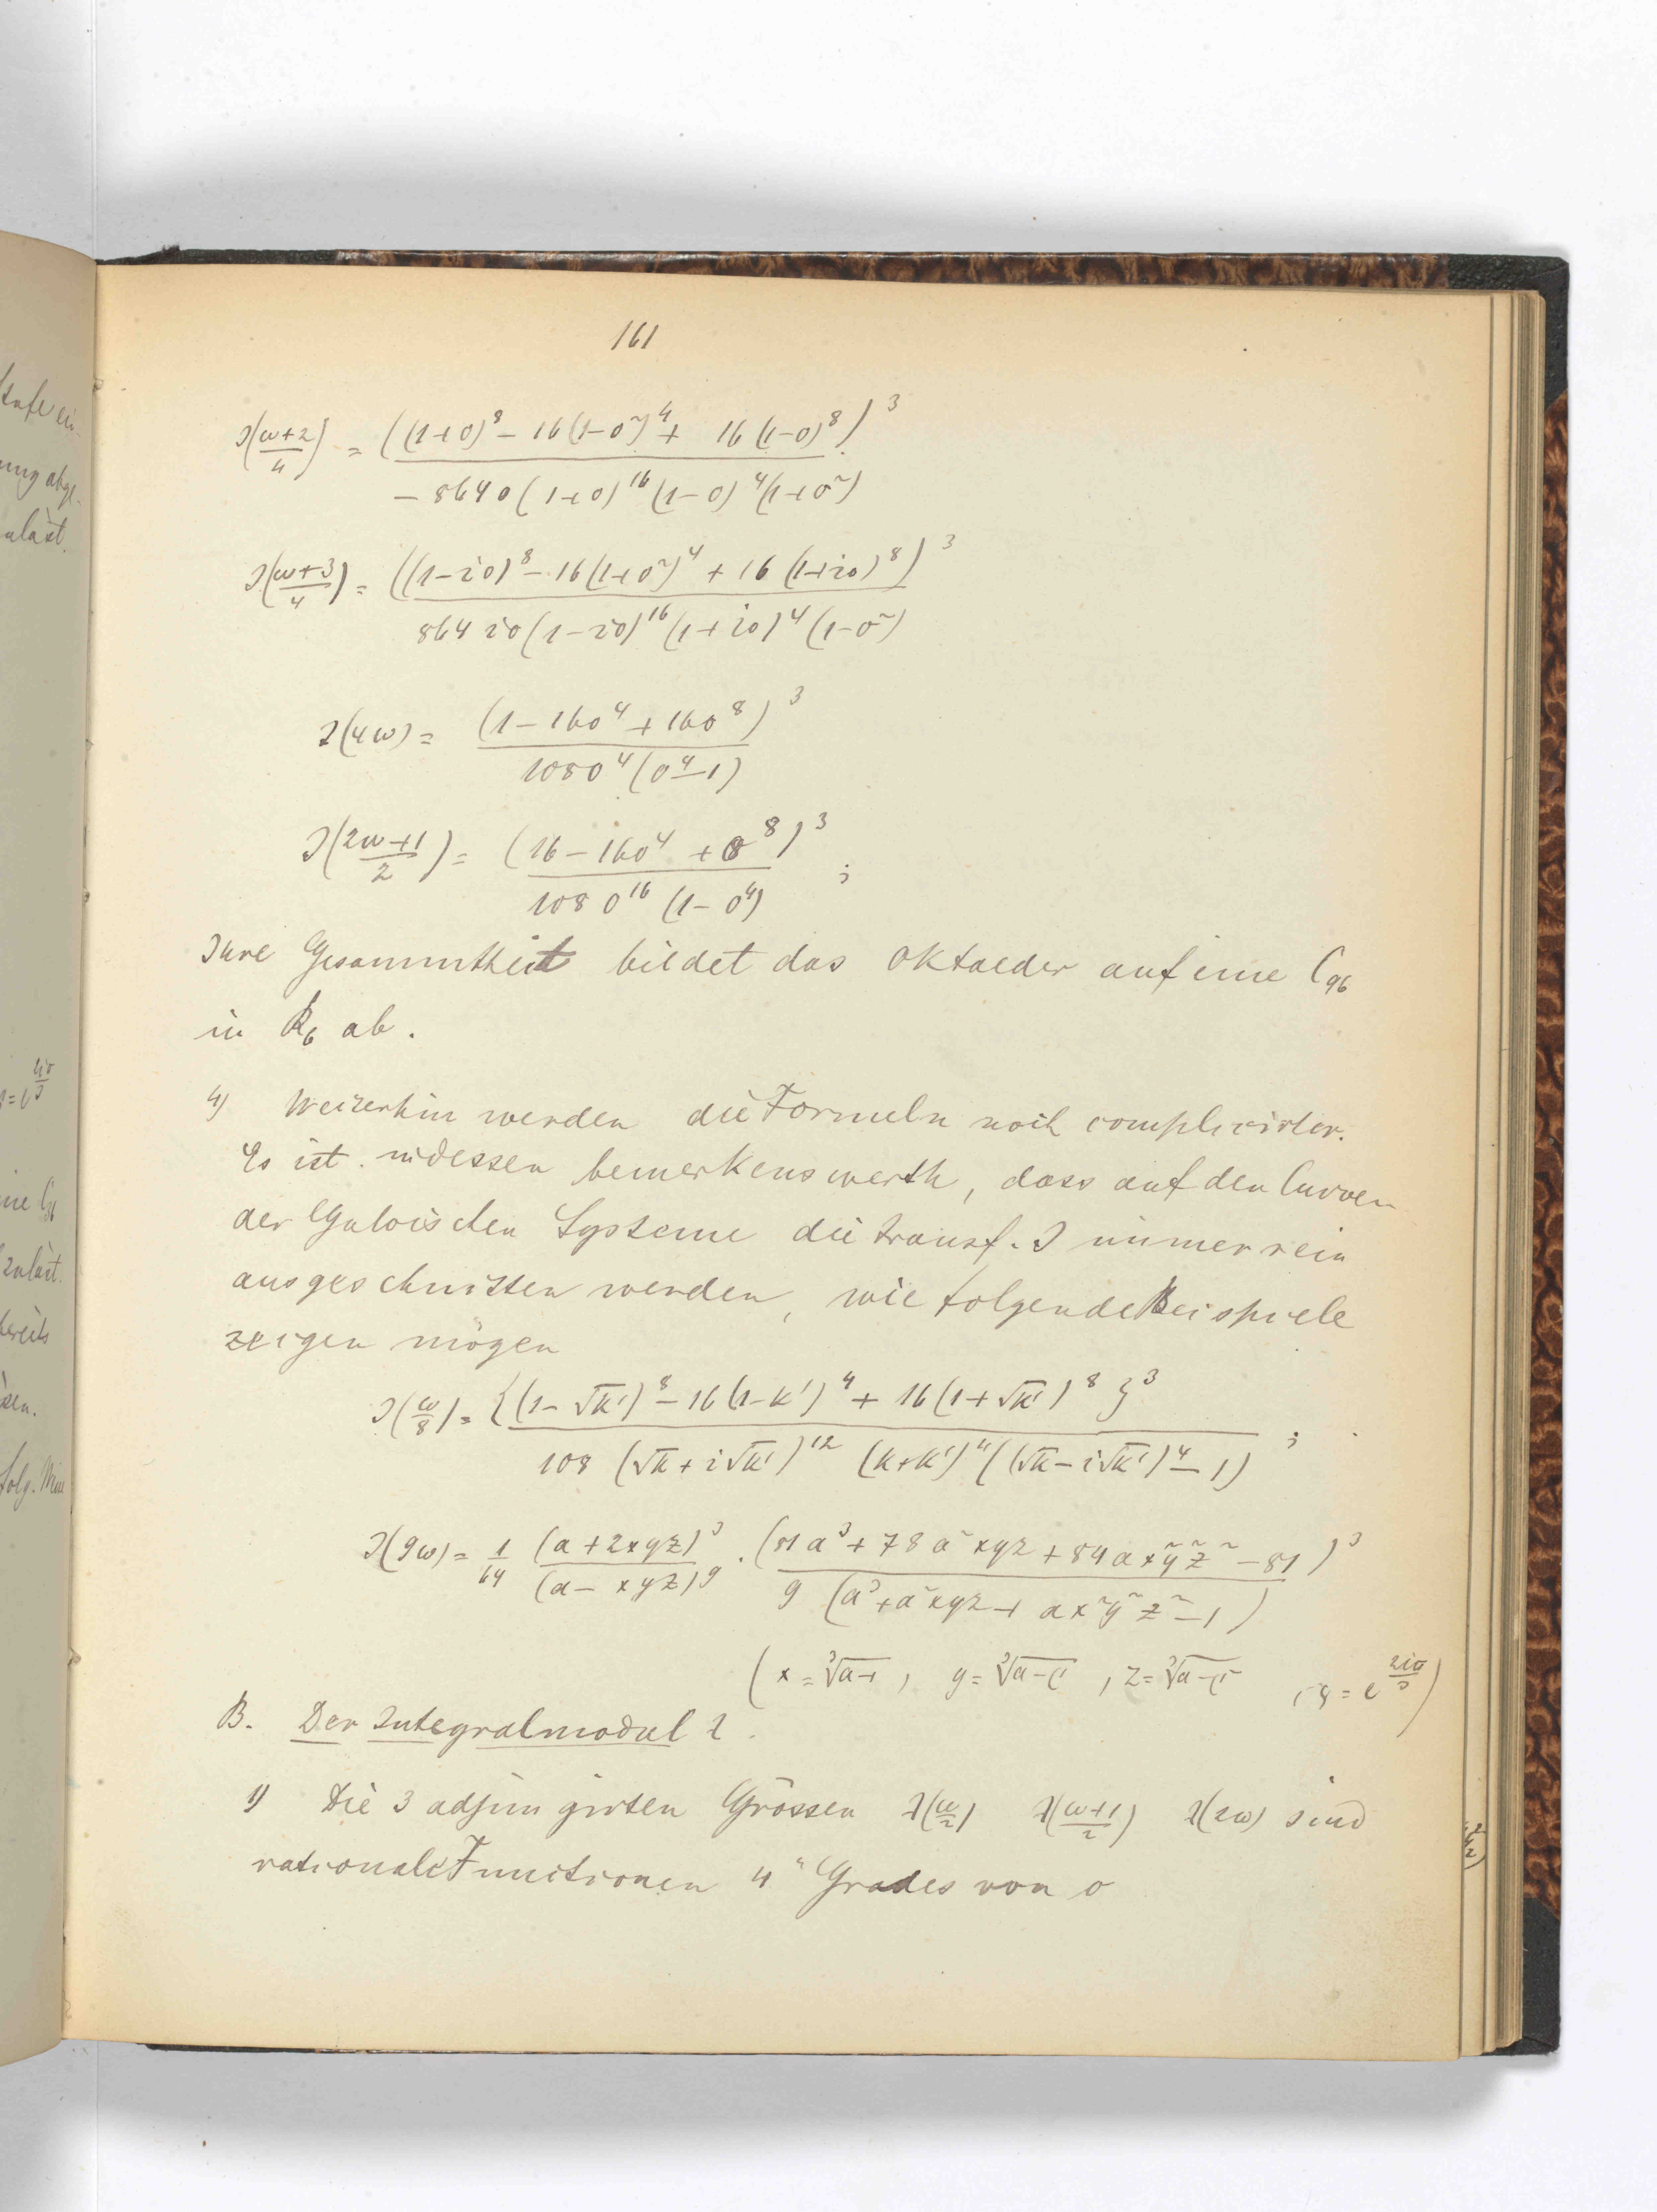 161
J(ω+2/4) = ((1+o)⁸ − 16(1−o²)⁴ + 16(1−o)⁸)³ / −864 o(1+o)¹⁶(1−o)⁴(1+o²)
J(ω+3/4) = ((1−io)⁸ − 16(1+o²)⁴ + 16(1+io)⁸)³ / 864 io(1−io)¹⁶(1+io)⁴(1−o²)
J(4ω) = (1−16o⁴+16o⁸)³ / 108o⁴(o⁴−1)
J(2ω+1/2) = (16−16o⁴+o⁸)³ / 108 o¹⁶(1−o⁴) ;
Ihre Gesammtheit bildet das Oktaeder auf eine C₉₆
in R₆ ab.
4) Weiterhin werden die Formeln noch complicirter.
Es ist indessen bemerkenswerth, dass auf den Curven
der Galoischen Systeme die transf. J immer rein
ausgeschnitten werden, wie folgende Beispiele
zeigen mögen
J(ω/8) = {(1−√k')⁸ − 16(1−k')⁴ + 16(1+√k')⁸}³ / 108 (√k+i√k')¹² (k+k')⁴((√k−i√k')⁴−1) ;
J(9ω) = 1/64 (a+2xyz)³/(a−xyz)⁹ · (81a³+78a²xyz+84ax²y²z²−81)³ / 9(a³+a²xyz+ax²y²z²−1)
(x=∛a−1, y=∛a−ϱ, z=∛a−ϱ², ϱ=e^2iπ/3)
B. Der Integralmodul λ.
1) Die 3 adjungirten Grössen λ(ω/2) λ(ω+1/2) λ(2ω) sind
rationale Functionen 4ⁿ Grades von o